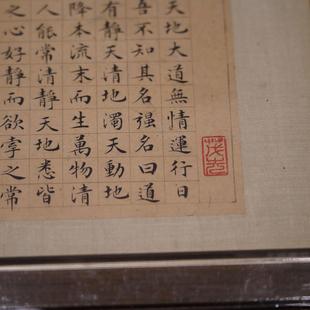 天地大道無情運行日
吾不知其名强名曰道
有靜天清地濁天動地
降本流末而生萬物清
人能常清靜天地悉皆
之心好靜而欲牽之常